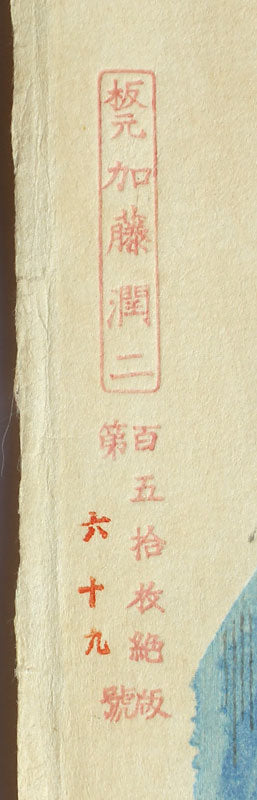 板元 加藤潤二
百五拾枚絶版
第六十九號